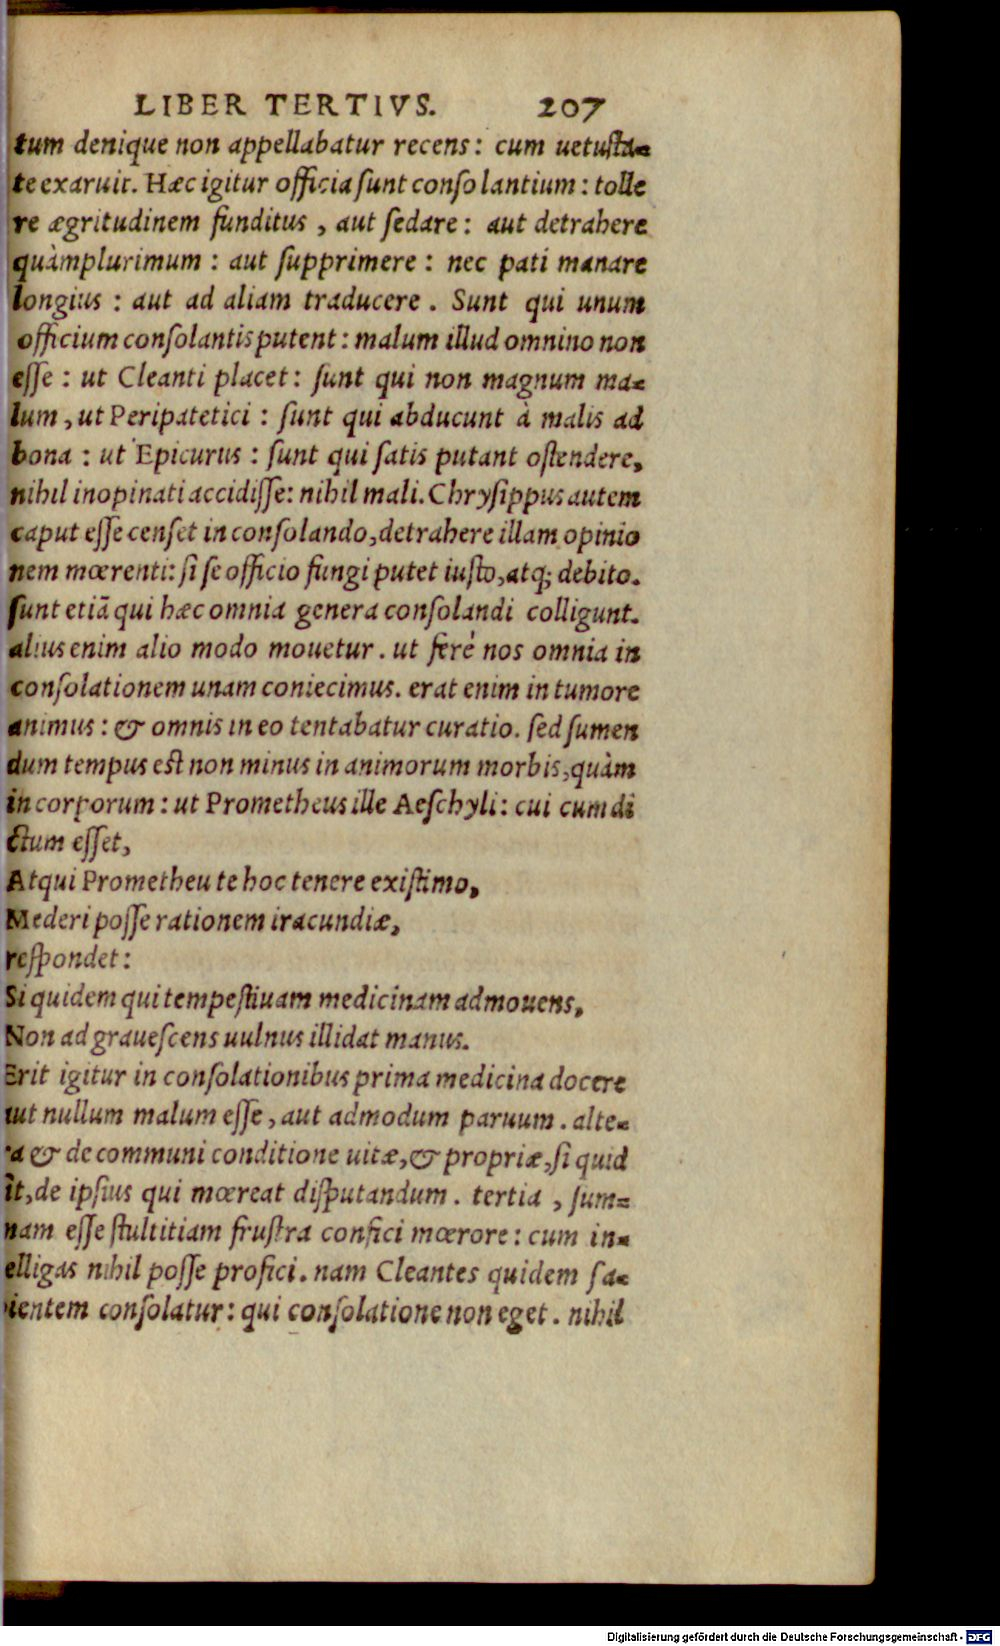 LIBER TERTIVS. 207
tum denique non appellabatur recens: cum uetuſta-
te exaruit. Hæc igitur officia ſunt conſolantium: tolle
re ægritudinem funditus, aut ſedare: aut detrahere
quàmplurimum: aut ſupprimere: nec pati manare
longius: aut ad aliam traducere. Sunt qui unum
officium conſolantis putent: malum illud omnino non
eſſe: ut Cleanti placet: ſunt qui non magnum ma-
lum, ut Peripatetici: ſunt qui abducunt à malis ad
bona: ut Epicurus: ſunt qui ſatis putant oſtendere,
nihil inopinati accidiſſe: nihil mali. Chryſippus autem
caput eſſe cenſet in conſolando, detrahere illam opinio
nem mœrenti: ſi ſe officio fungi putet iuſto, atq; debito.
ſunt etiã qui hæc omnia genera conſolandi colligunt.
alius enim alio modo mouetur. ut ferè nos omnia in
conſolationem unam coniecimus. erat enim in tumore
animus: & omnis in eo tentabatur curatio. ſed ſumen
dum tempus eſt non minus in animorum morbis, quàm
in corporum: ut Prometheus ille Aeſchyli: cui cum di
ctum eſſet,
Atqui Prometheu te hoc tenere exiſtimo,
Mederi poſſe rationem iracundiæ,
reſpondet:
Si quidem qui tempeſtiuam medicinam admouens,
Non ad graueſcens uulnus illidat manus.
Erit igitur in conſolationibus prima medicina docere
aut nullum malum eſſe, aut admodum paruum. alte-
ra & de communi conditione uitæ, & propriæ, ſi quid
ſit, de ipſius qui mœreat diſputandum. tertia, ſum-
mam eſſe ſtultitiam fruſtra confici mœrore: cum in-
telligas nihil poſſe profici. nam Cleantes quidem ſa-
pientem conſolatur: qui conſolatione non eget. nihil
Digitalisierung gefördert durch die Deutsche Forschungsgemeinschaft - DFG